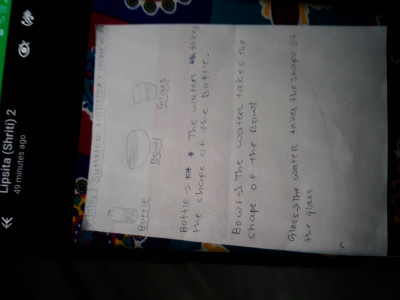 Lipsita (Shriti) 2
49 minutes ago
SUMMER
Bottle
Bowl
Glass
Bottle → The water takes
the shape of the Bottle.
Bowl → The water takes the
shape of the Bowl
Glass → The water takes the shape of
the Glass